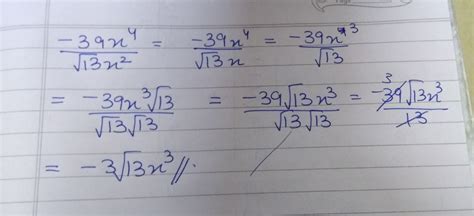 -39x⁴/√13x² = -39x⁴/√13 x = -39x³/√13
= -39x³√13/√13√13 = -39√13x³/√13√13 = -39√13x³/13 3
= -3√13x³//.